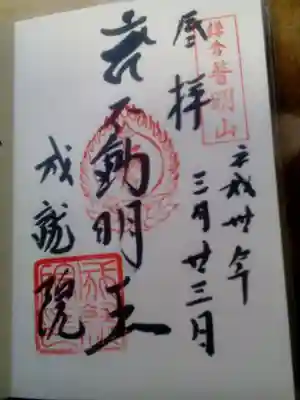 鎌倉 普明山
平成卅年
三月廿三日
奉拝
不動明王
成就院